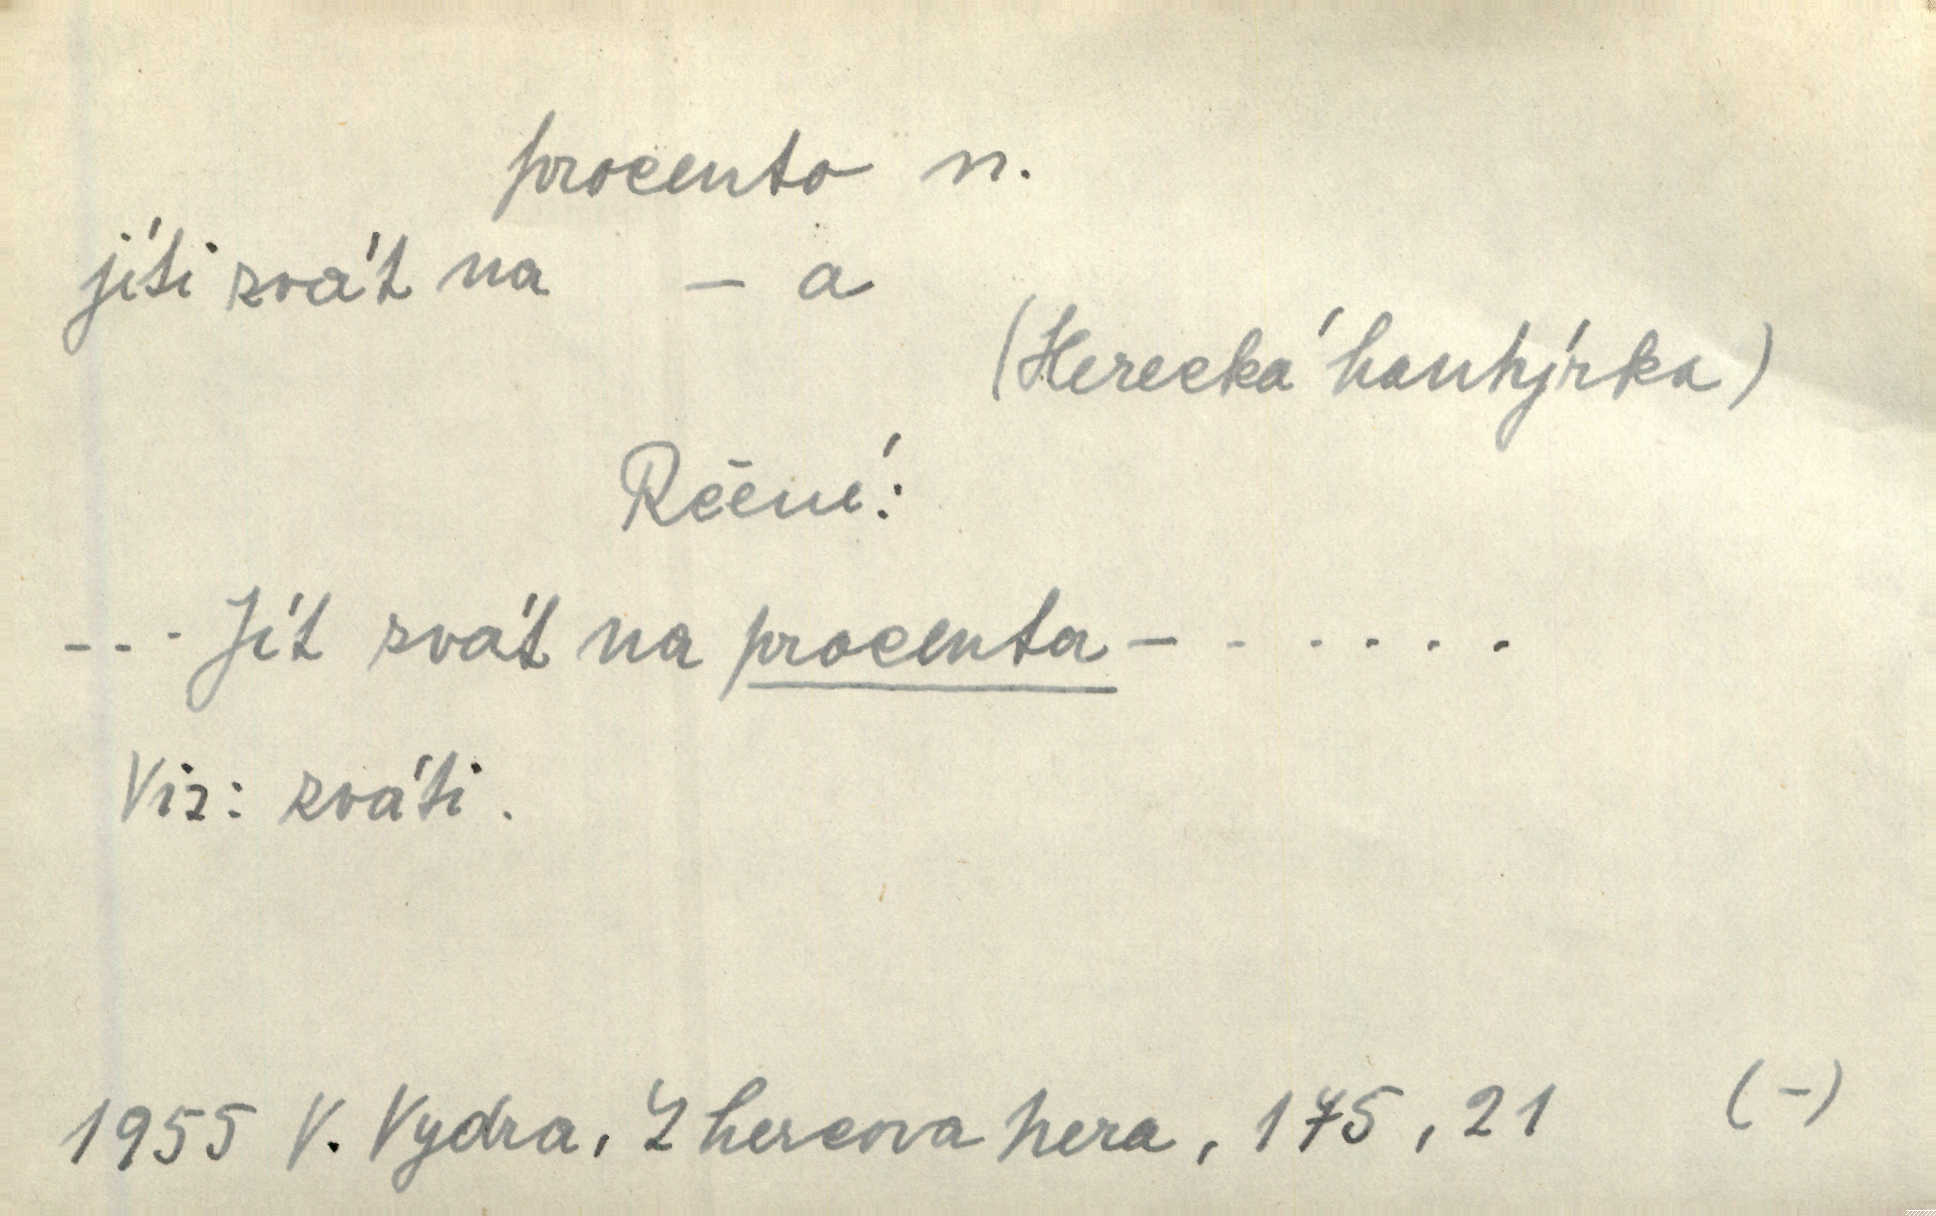 procento n.
jíti zvát na – a
(Herecká hantýrka)
Rčení:
- - - Jít zvát na procenta – - . . . . .
Viz: zváti.
1955 V. Vydra, Z hercova pera, 175, 21 (-)